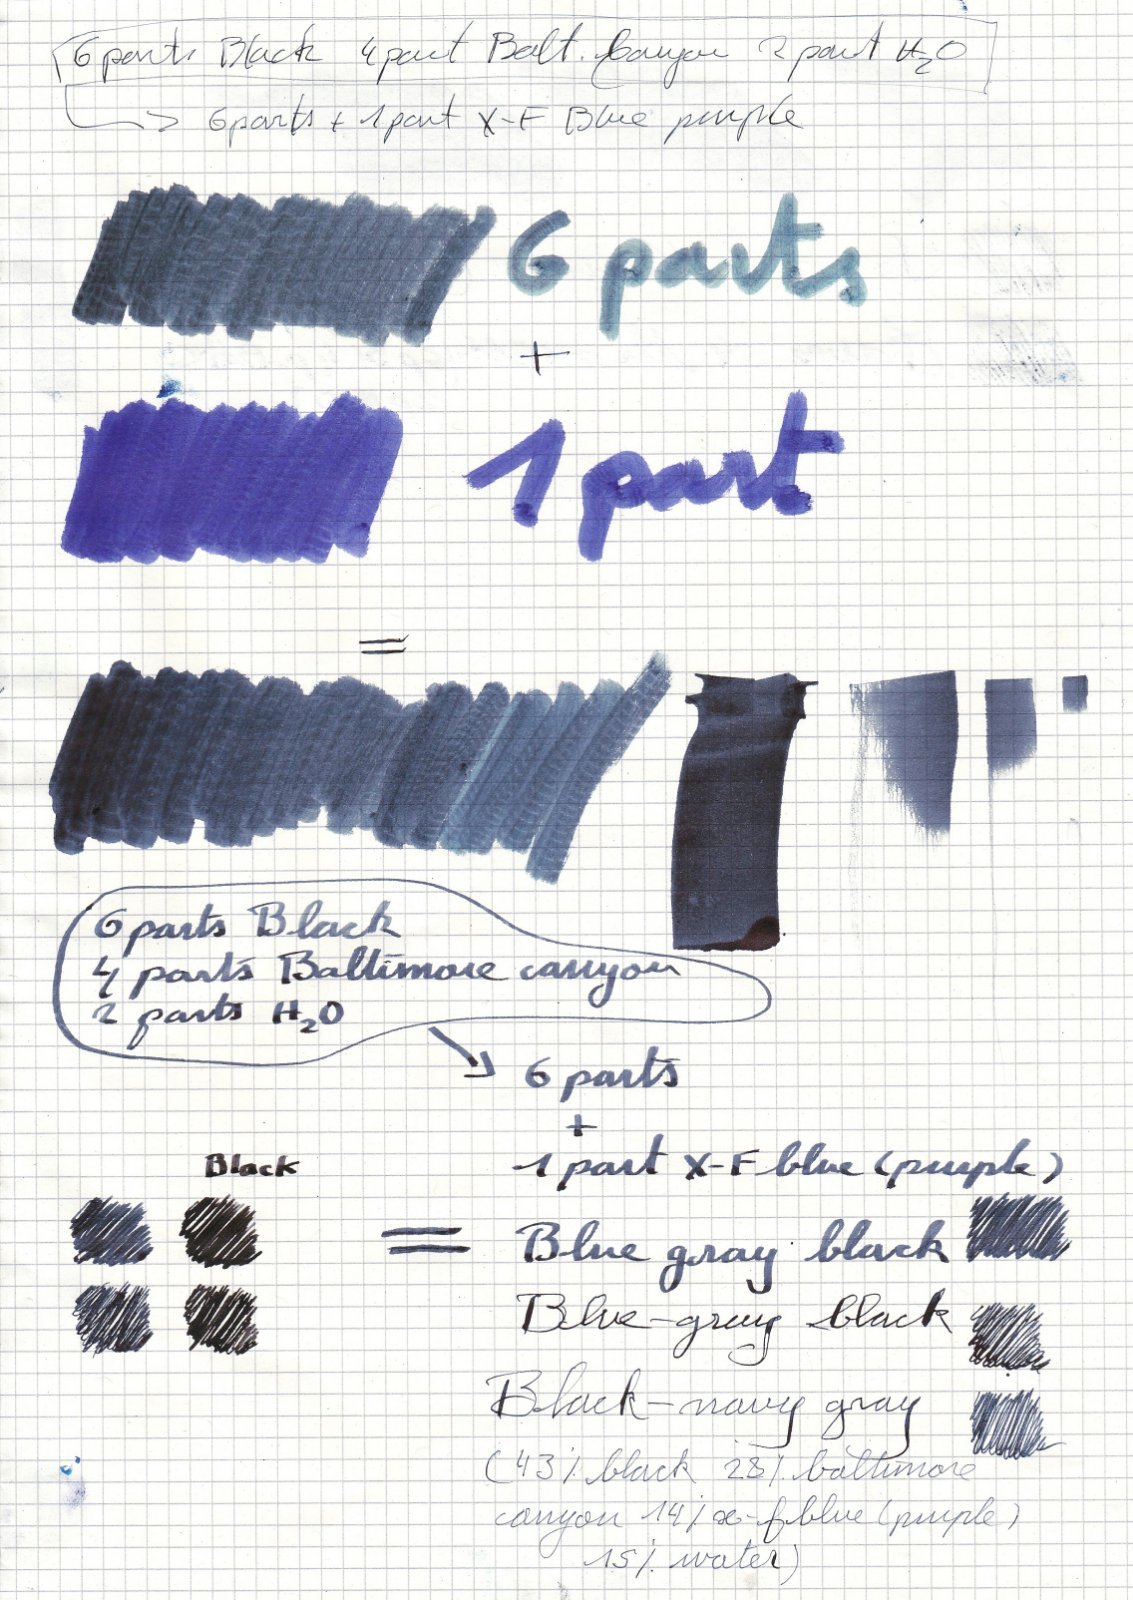 6 parts Black 4 part Balt. Canyon 2 part H2O
6 parts + 1 part X-F Blue purple
6 parts
+
1 part
=
6 parts Black
4 parts Baltimore canyon
2 parts H2O
6 parts
+
1 part X-F blue (purple)
Black
= Blue gray black
Blue-gray black
Black-navy gray
(43% black 28% baltimore
canyon 14% x-f blue (purple)
15% water)